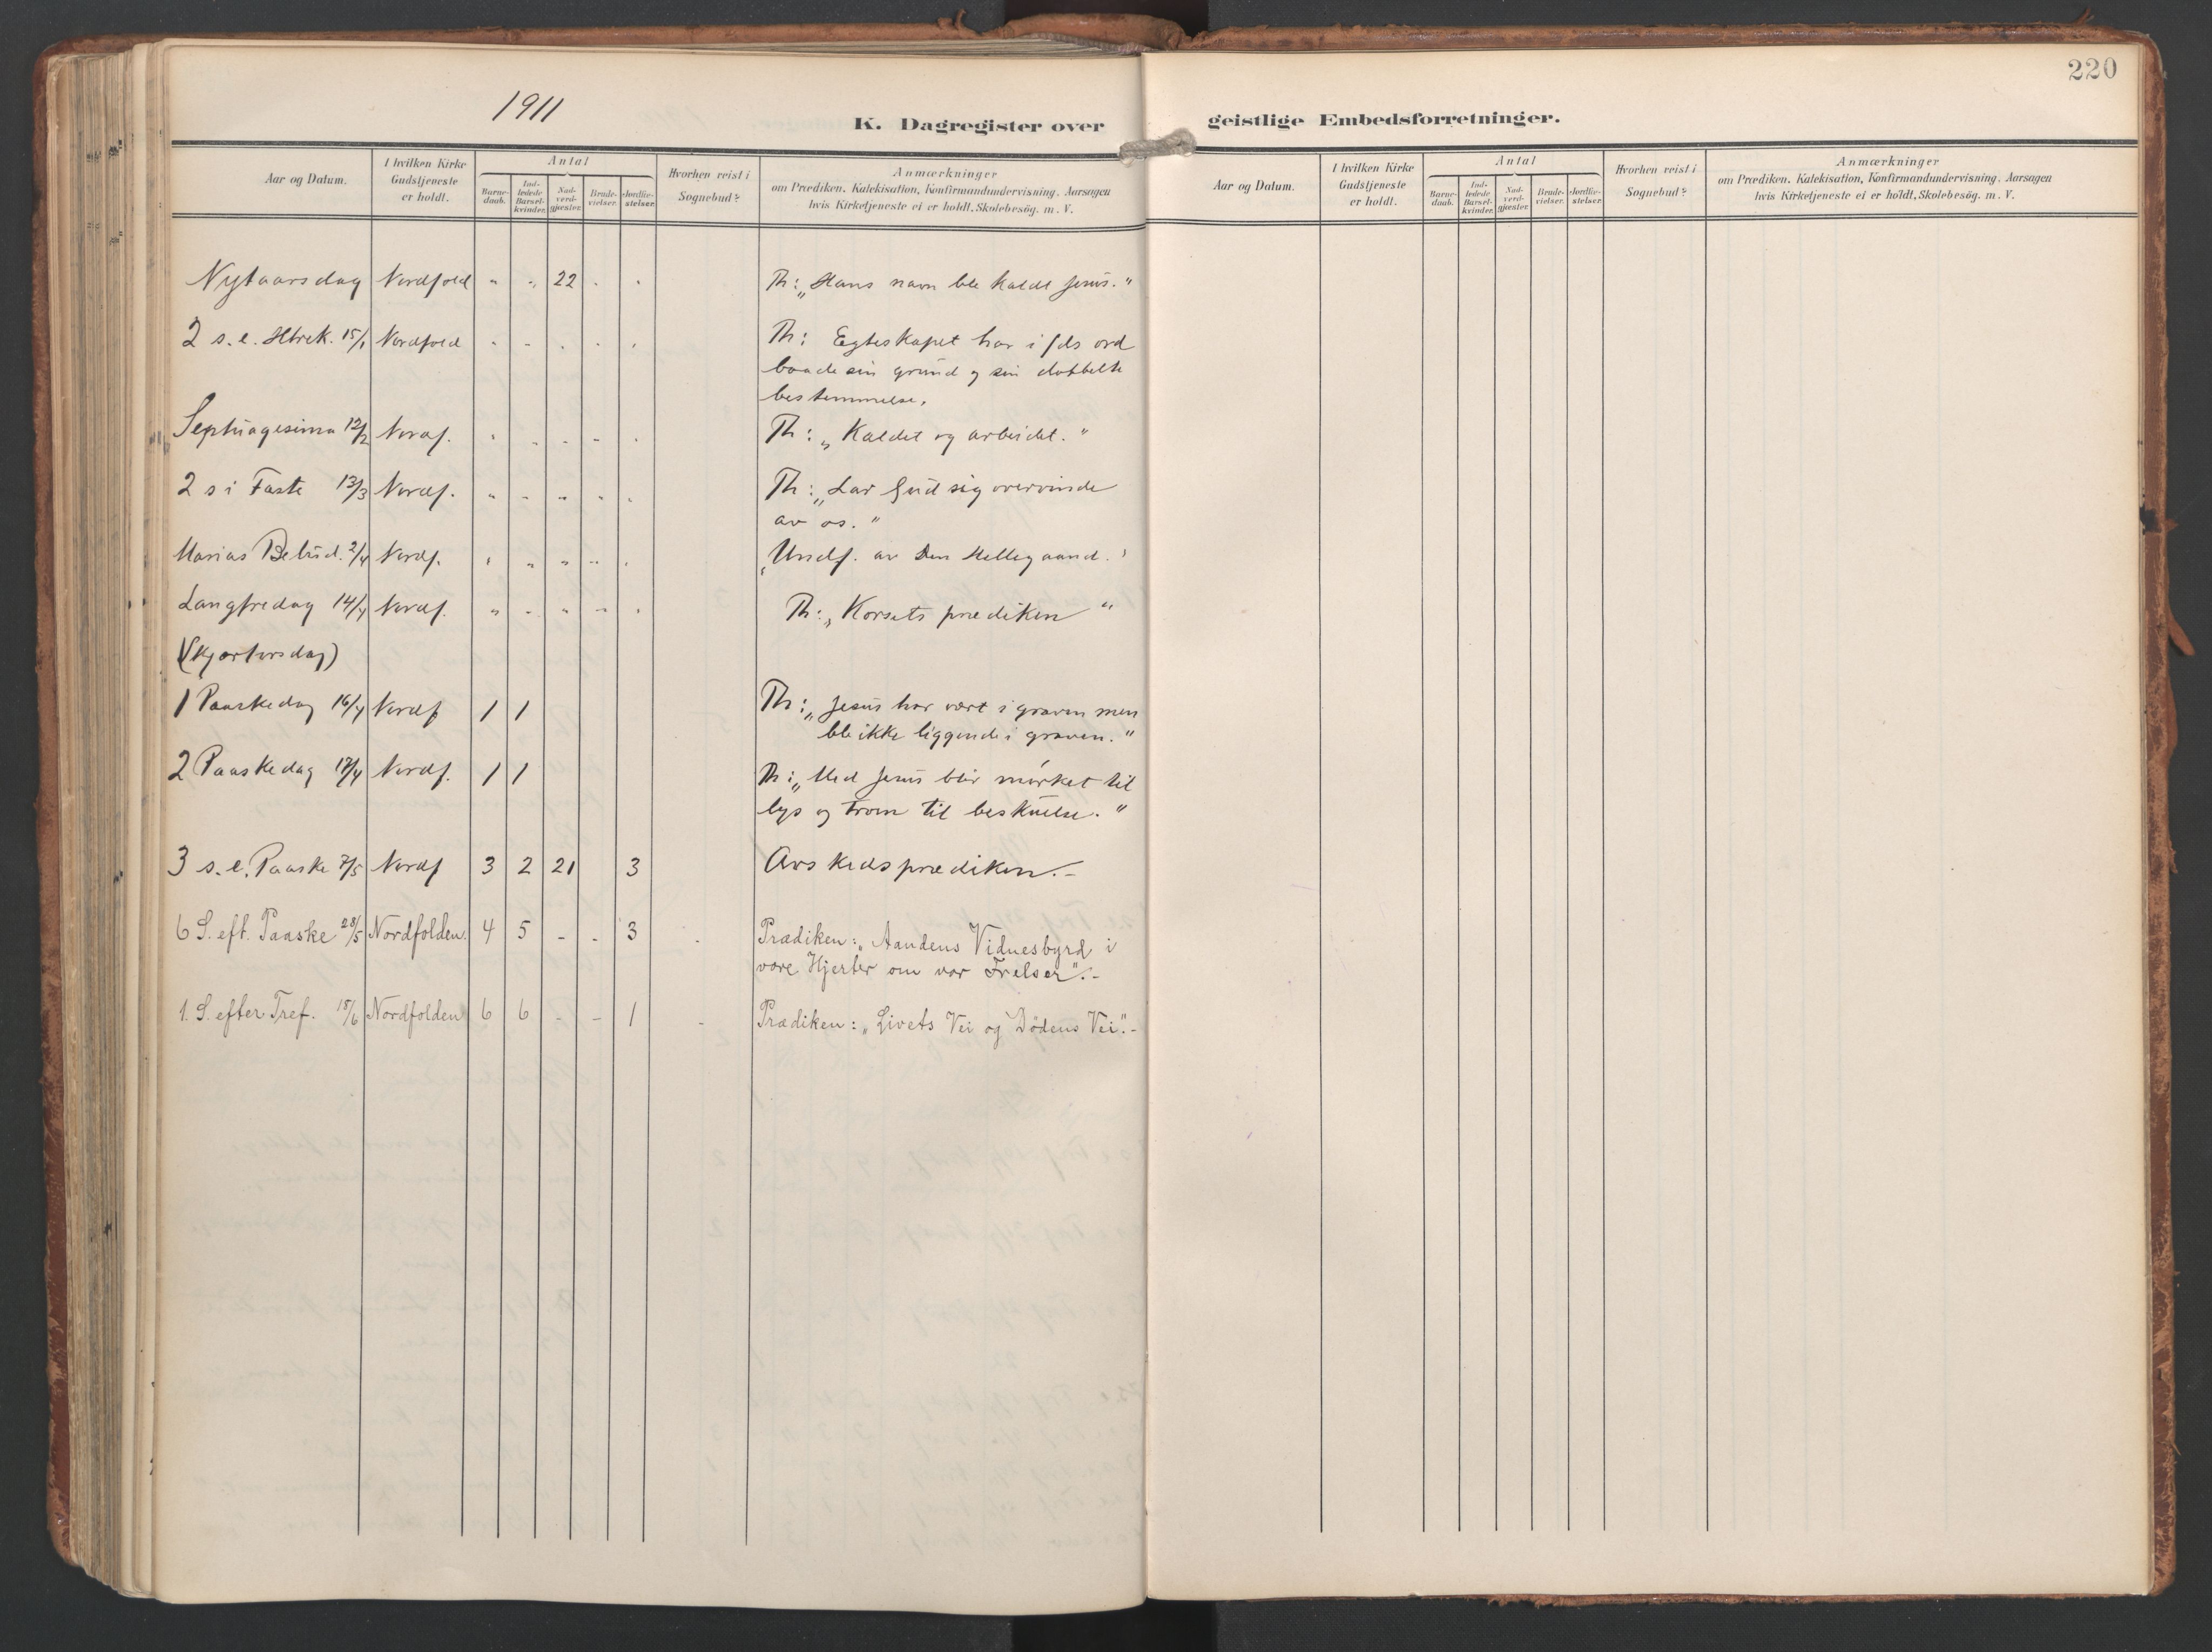 220
1911
K. Dagregister over geistlige Embedsforretninger.
Aar og Datum. I hvilken Kirke Gudstjeneste er holdt. Antal Barne-daab. Ind-ledede Barsel-kvinder. Nad-verd-gjæster. Brude-vielser. Jordfæ-stelser. Hvorhen reist i Sognebud? Anmærkninger om Prædiken. Katekisation, Konfirmandundervisning. Aarsagen hvis Kirketjeneste ei er holdt, Skolebesög. m. V.
Aar og Datum. I hvilken Kirke Gudstjeneste er holdt. Antal Barne-daab. Ind-ledede Barsel-kvinder. Nad-verd-gjæster. Brude-vielser. Jordfæ-stelser. Hvorhen reist i Sognebud? Anmærkninger om Prædiken. Katekisation, Konfirmandundervisning. Aarsagen hvis Kirketjeneste ei er holdt, Skolebesög. m. V.
Nytaarsdag Nordfold " " 22 " " Th: „Hans navn ble kaldt Jesus."
2 s. e. Htrek. 15/1 Nordfold " " " " " Th: Egteskapet har i Gds ord
baade sin grund og sin dobbelte
bestemmelse.
Septuagesima 12/2 Nordf. " " " " " Th: „Kaldet og arbeidet."
2 s i Faste 13/3 Nordf. " " " " " Th: „Lar Gud sig overvinde
av os."
Marias Bebud. 2/4 Nordf. " " " " " „Undf. av Den Helligaand."
Langfredag 14/4 Nordf. " " " " " Th: „Korsets prædiken"
(Skjærtorsdag)
1 Paaskedag 16/4 Nordf 1 1 Th: „Jesus har vært i graven men
ble ikke liggende i graven."
2 Paaskedag 17/4 Nordf. 1 1 Th: „Med Jesus blir mørket til
lys og troen til beskuelse."
3 s. e. Paaske 7/5 Nordf 3 2 21 3 Avskedsprædiken.-
6 S. eft. Paaske 28/5 Nordfolden. 4 5 - - 3 - Prædiken: „Aandens Vidnesbyrd i
vore Hjerter om vor Frelser".-
1. S. efter Tref. 18/6 Nordfolden 6 6 - - 1 - Prædiken: „Livets Vei og Dödens Vei".-